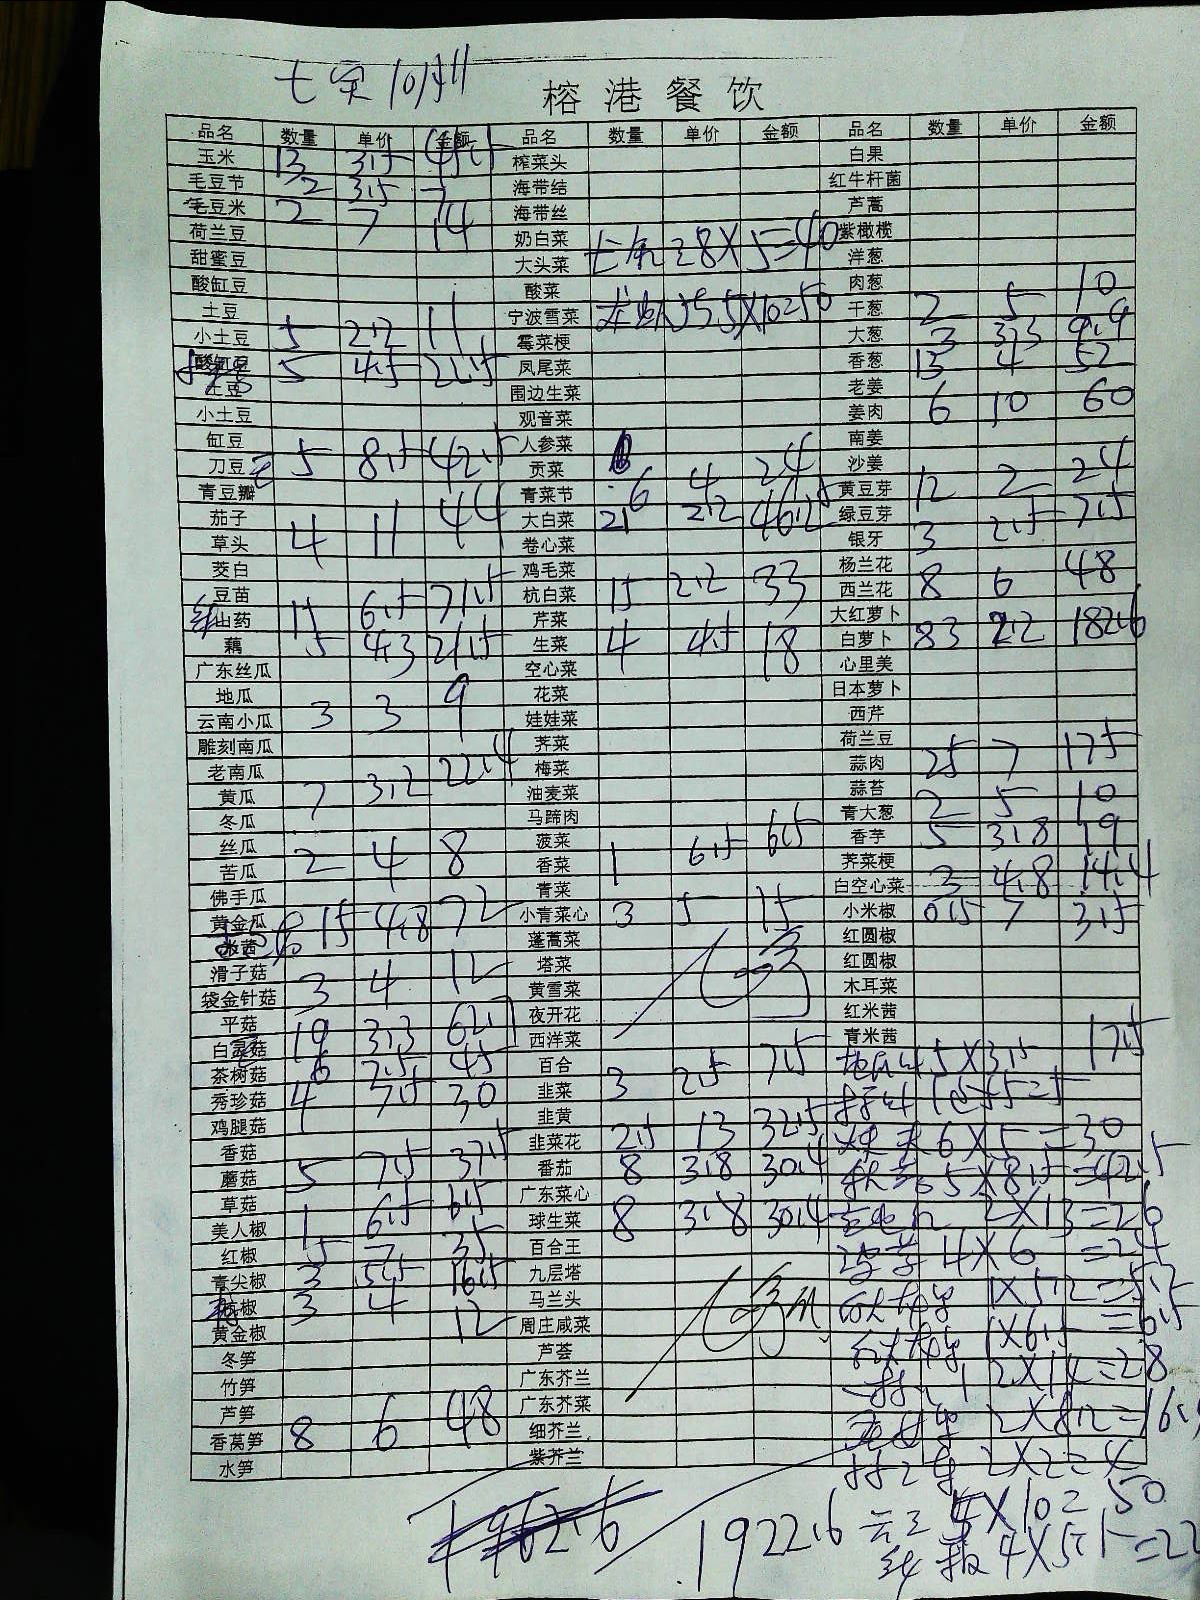 10月11
榕港餐饮
品名 数量 单价 金额 品名 数量 单价 金额 品名 数量 单价 金额
玉米 13 3.5 45.5 榨菜头 白果
毛豆节 2 3.5 7 海带结 红牛杆菌
毛豆米 2 7 14 海带丝 芦蒿
荷兰豆 奶白菜 8X5=40 紫橄榄
甜蜜豆 大头菜 洋葱
酸缸豆 酸菜 肉葱
土豆 宁波雪菜 干葱 2 5 10
小土豆 5 2.2 11 霉菜梗 大葱 3 3.3 9.9
酸缸豆 5 4.5 22.5 凤尾菜 香葱 13 4 52
土豆 围边生菜 老姜
小土豆 观音菜 姜肉 6 10 60
缸豆 人参菜 南姜
刀豆 5 8.5 42.5 贡菜 沙姜
青豆瓣 青菜节 6 4 24 黄豆芽 12 2 24
茄子 4 11 44 大白菜 21 2.2 46.2 绿豆芽 3 2.5 7.5
草头 卷心菜 银牙
茭白 鸡毛菜 杨兰花
豆苗 杭白菜 15 2.2 33 西兰花 8 6 48
山药 11 6.5 71.5 芹菜 大红萝卜
藕 5 4.3 21.5 生菜 4 4.5 18 白萝卜 83 2.2 182.6
广东丝瓜 空心菜 心里美
地瓜 花菜 日本萝卜
云南小瓜 3 3 9 娃娃菜 西芹
雕刻南瓜 荠菜 荷兰豆
老南瓜 梅菜 蒜肉 25 7 175
黄瓜 7 3.2 22.4 油麦菜 蒜苔
冬瓜 马蹄肉 青大葱 2 5 10
丝瓜 菠菜 香芋 5 3.8 19
苦瓜 2 4 8 香菜 1 6.5 6.5 荠菜梗
佛手瓜 青菜 白空心菜 3 4.8 14.4
黄金瓜 15 4.8 72 小青菜心 3 5 15 小米椒 0.5 7 3.5
水茜 蓬蒿菜 红圆椒
滑子菇 塔菜 红圆椒
袋金针菇 3 4 12 黄雪菜 木耳菜
平菇 夜开花 红米茜
白灵菇 19 3.3 62.7 西洋菜 青米茜
茶树菇 6 7.5 45 百合 5X3.5 17.5
秀珍菇 4 7.5 30 韭菜 3 2.5 7.5
鸡腿菇 韭黄
香菇 韭菜花 2.5 13 32.5 6X5=30
蘑菇 5 7.5 37.5 番茄 8 3.8 30.4 5X8.5=42.5
草菇 广东菜心
美人椒 1 6.5 6.5 球生菜 8 3.8 30.4 2X13=26
红椒 5 7 35 百合王 4X6=24
青尖椒 3 5.5 16.5 九层塔
杭椒 3 4 12 马兰头 1X5.2=5.2
黄金椒 周庄咸菜 1X6.5=6.5
冬笋 芦荟
竹笋 广东芥兰 2X14=28
芦笋 广东芥菜
香莴笋 8 6 48 细芥兰 2X8.2=16.4
水笋 紫芥兰 2X2=4
1922.6 5X10=50
4X5.5=22